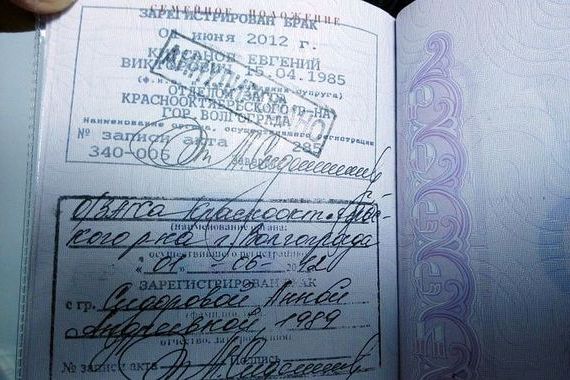 СЕМЕЙНОЕ ПОЛОЖЕНИЕ
ЗАРЕГИСТРИРОВАН БРАК
01 июня 2012 г.
ЕВГЕНИЙ
ВИКТОРОВИЧ 15.04.1985
ОТДЕЛОМ ЗАГСА
КРАСНООКТЯБРЬСКОГО Р-НА
ГОР. ВОЛГОГРАДА
Наименование органа, осуществившего регистрацию
№ записи акта 285
340-006 Заверено
О/ЗАГСа Краснооктябрь-
(наименование органа:
кого р-на г. Волгограда
осуществившего регистрацию)
"01" - 06 - 2012
ЗАРЕГИСТРИРОВАН БРАК
с гр. Сидоровой Анной
Андреевной, 1989
отчество, дата рождения)
№ записи акта Подпись